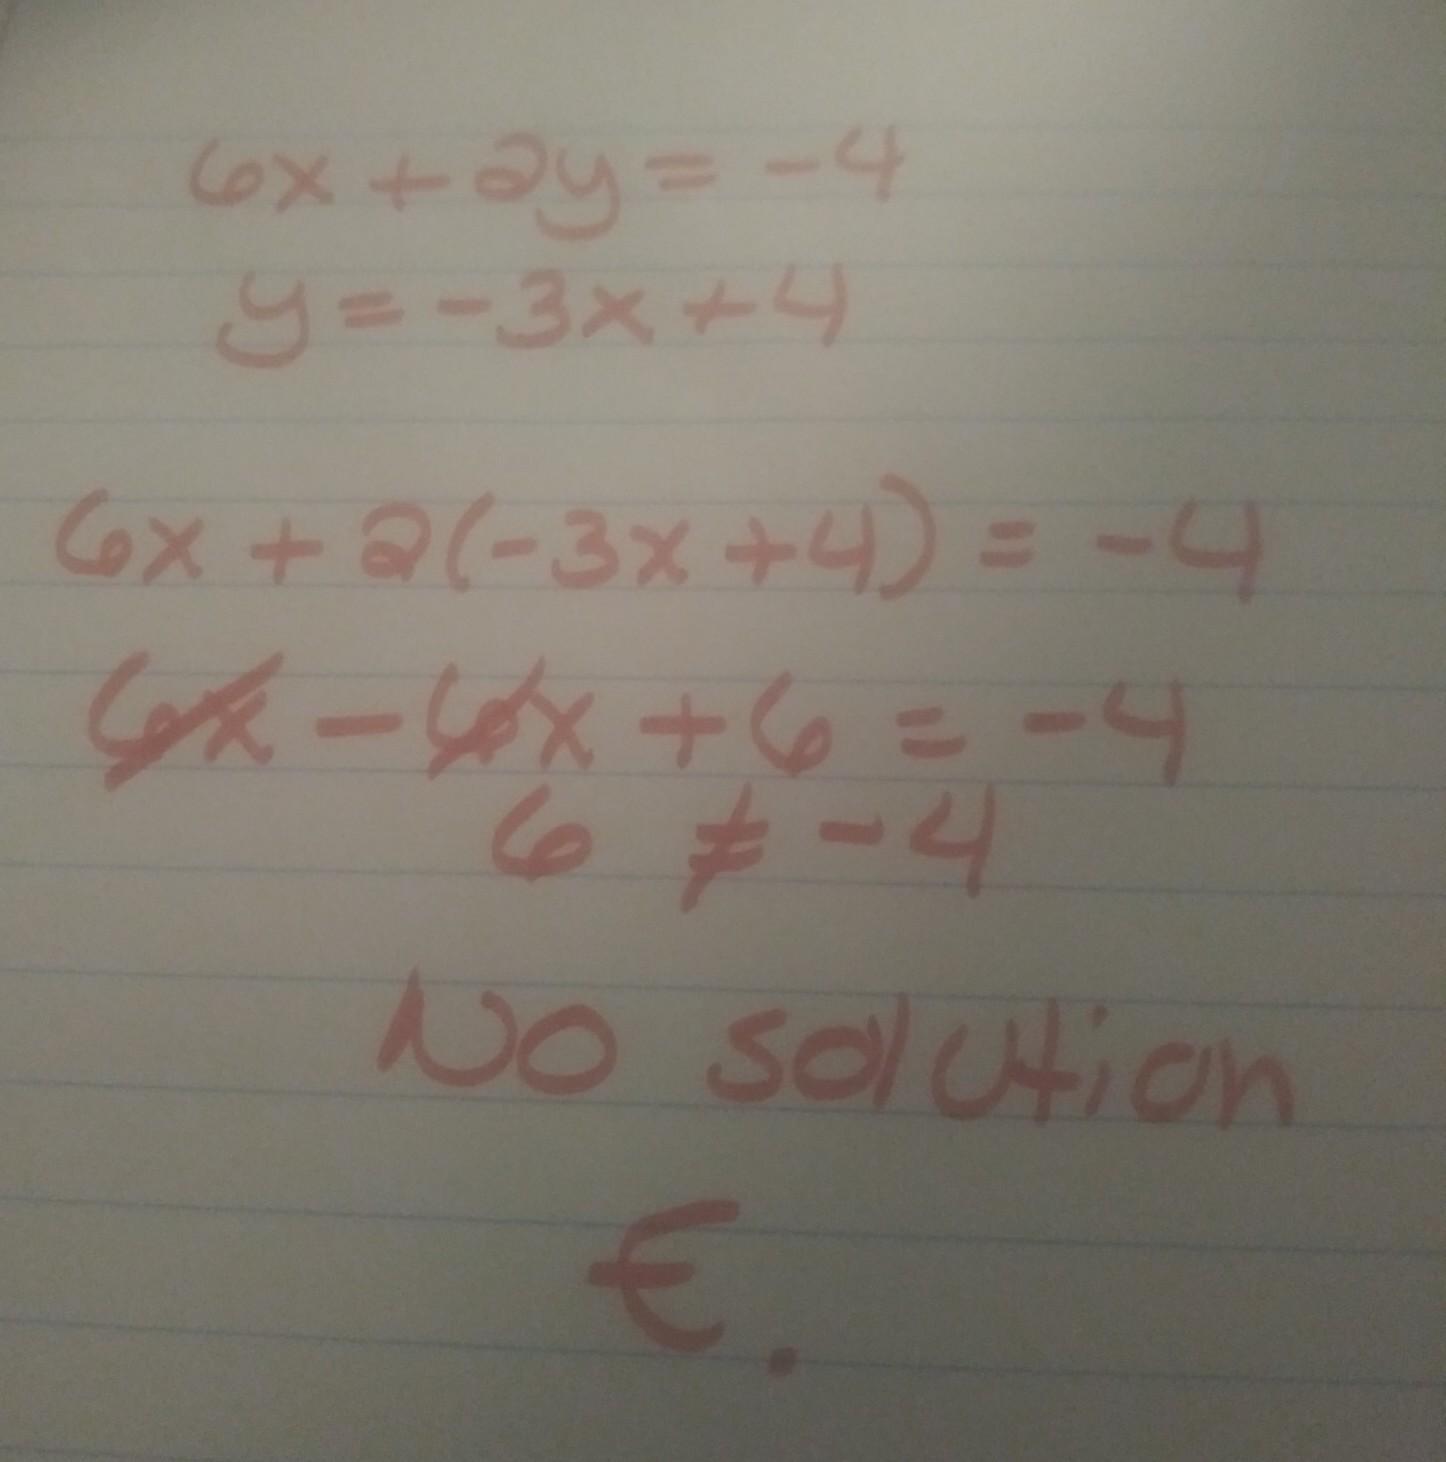 6x + 2y = -4
y = -3x + 4
6x + 2(-3x + 4) = -4
6x - 6x + 6 = -4
6 ≠ -4
No solution
€.